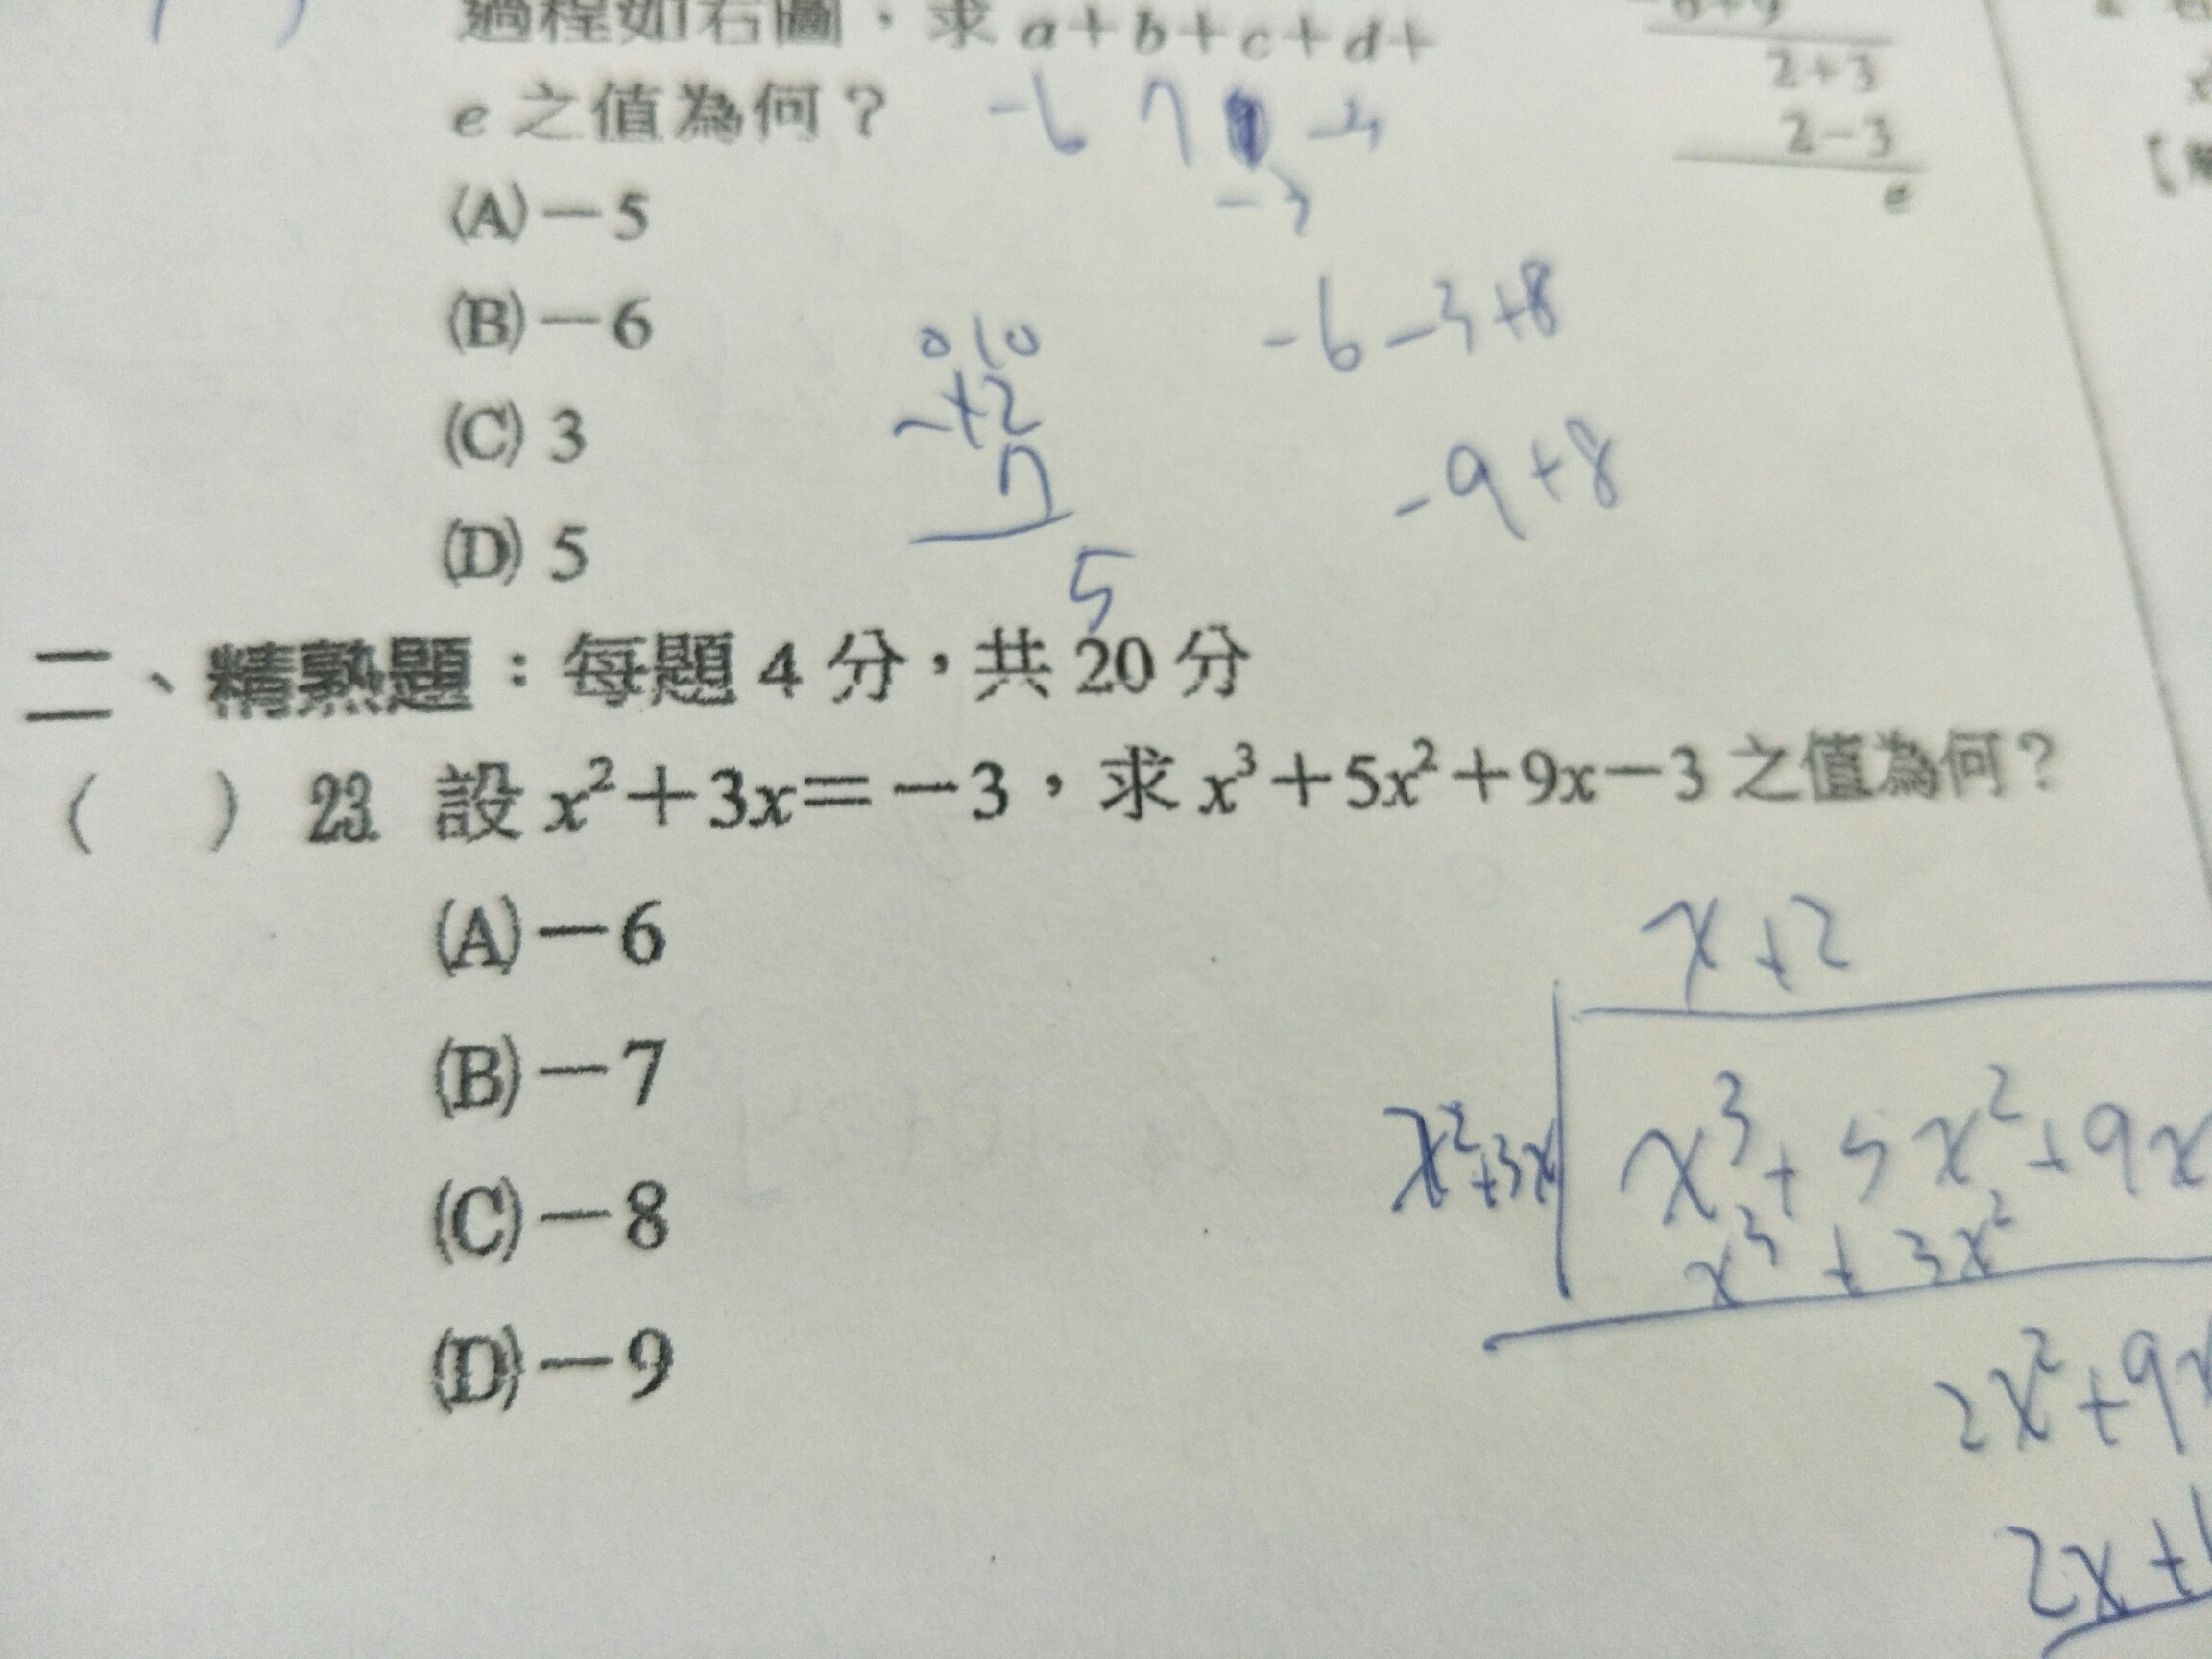 過程如右圖，求 a+b+c+d+
e 之值為何？
-6 7 -3
(A)－5
(B)－6
(C) 3
(D) 5
2+3
2－3
e
-6-3+8
-9+8
0 10
-12
7
5
二、精熟題：每題 4 分，共 20 分
(   ) 23. 設 x²＋3x＝－3，求 x³＋5x²＋9x－3 之值為何？
(A)－6
(B)－7
(C)－8
(D)－9
x+2
x²+3x
x³+5x²+9x
x³+3x²
2x²+9x
2x+